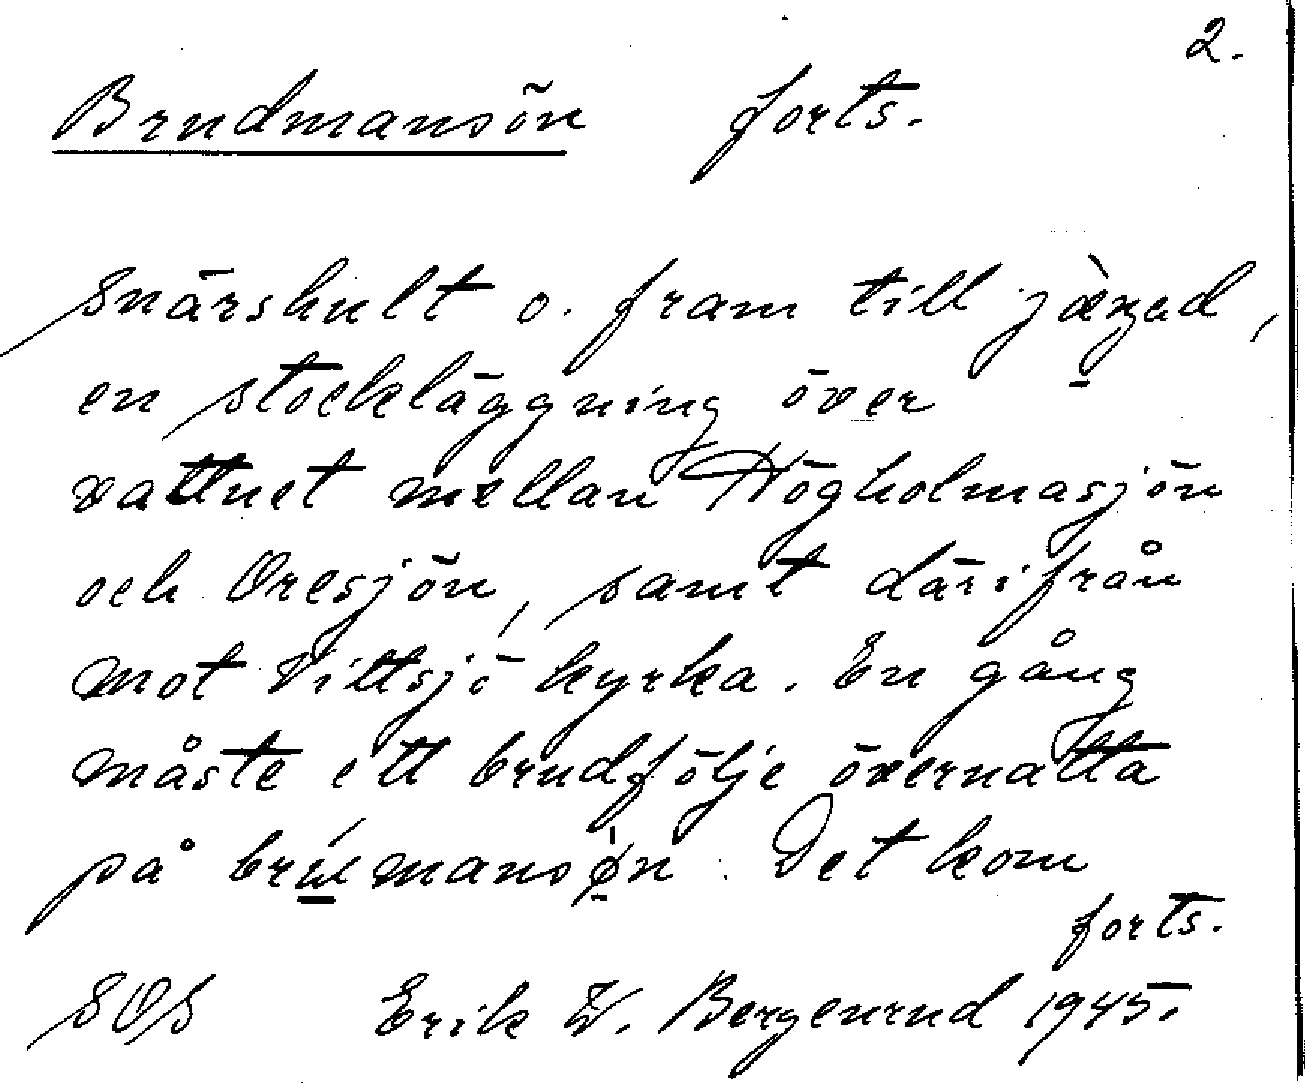 2.
Brudmansön forts.
Snärshult o. fram till
en stockläggning över
vattnet mellan Högholmasjön
och Oresjön, samt därifrån
mot Vittsjö kyrka. En gång
måste ett brudfölje övernatta
på Det kom
forts.
SOS Erik W. Bergenrud 1945.